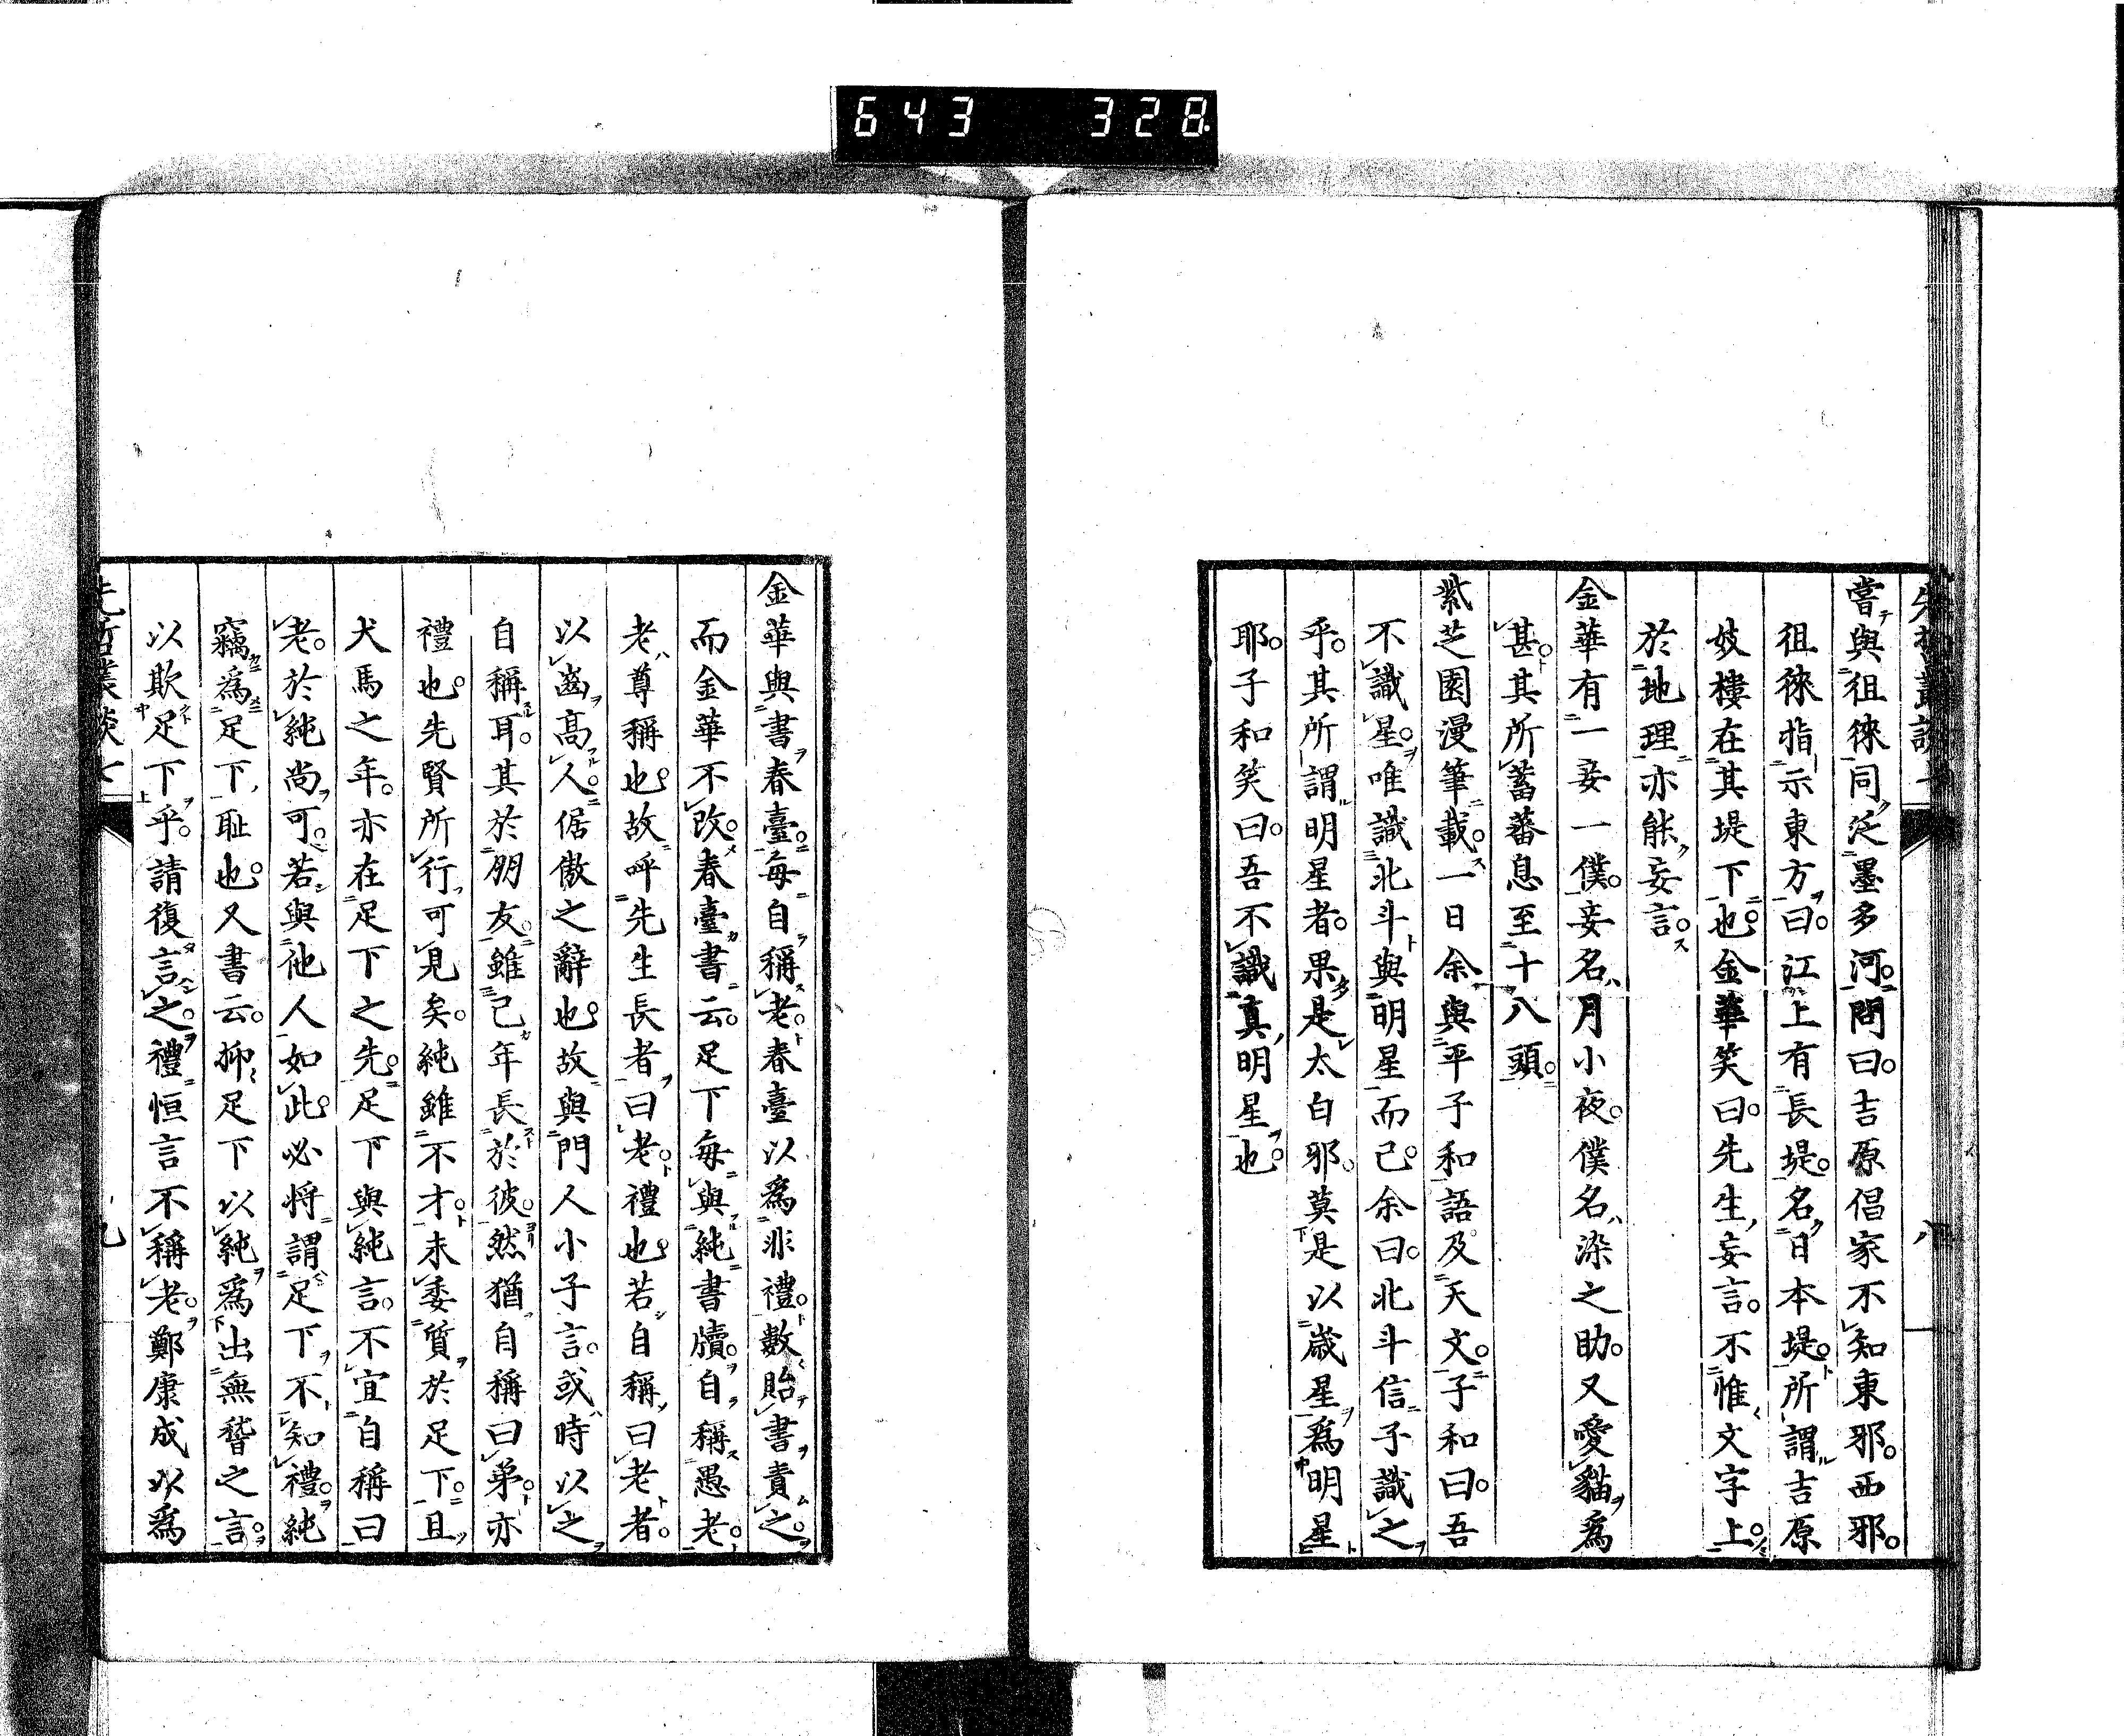 643 328
嘗與徂徠同泛墨多河。問曰。吉原倡家不知東邪。西邪。
徂徠指示東方曰。江上有長堤。名日本堤。所謂吉原
妓樓在其堤下也。金華笑曰。先生妄言。不惟文字上。
於地理亦能妄言。
金華有一妾一僕。妾名月小夜。僕名染之助。又愛貓爲
甚。其所蓄蕃息至十八頭。
紫芝園漫筆載。一日余與平子和語及天文。子和曰。吾
不識星。唯識北斗與明星而已。余曰。北斗信子識之
乎。其所謂明星者。果是太白邪。莫是以歲星爲明星
耶。子和笑曰。吾不識真明星也。
八
金華與書春臺。每自稱老。春臺以爲非禮。數貽書責之。
而金華不改。春臺書云。足下每與純書牘。自稱愚老。
老尊稱也。故呼先生長者曰老。禮也。若自稱曰老者。
以齒高人。倨傲之辭也。故與門人小子言。或時以之
自稱耳。其於朋友。雖己年長於彼。然猶自稱曰弟。亦
禮也。先賢所行可見矣。純雖不才。未委質於足下。且
犬馬之年。亦在足下之先。足下與純言。不宜自稱曰
老。於純尚可。若與他人如此。必將謂足下不知禮。純
竊爲足下恥也。又書云。抑足下以純爲出無稽之言。
以欺足下乎。請復言之。禮恒言不稱老。鄭康成以爲
先哲叢談七
九